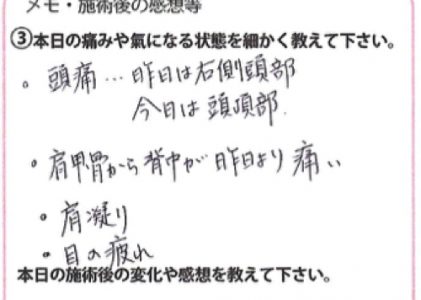 メモ・施術後の感想等
③本日の痛みや氣になる状態を細かく教えて下さい。
。頭痛…昨日は右側頭部
今日は頭頂部.
・肩甲骨から背中が昨日より痛い
・肩凝り
・目の疲れ
本日の施術後の変化や感想を教えて下さい。